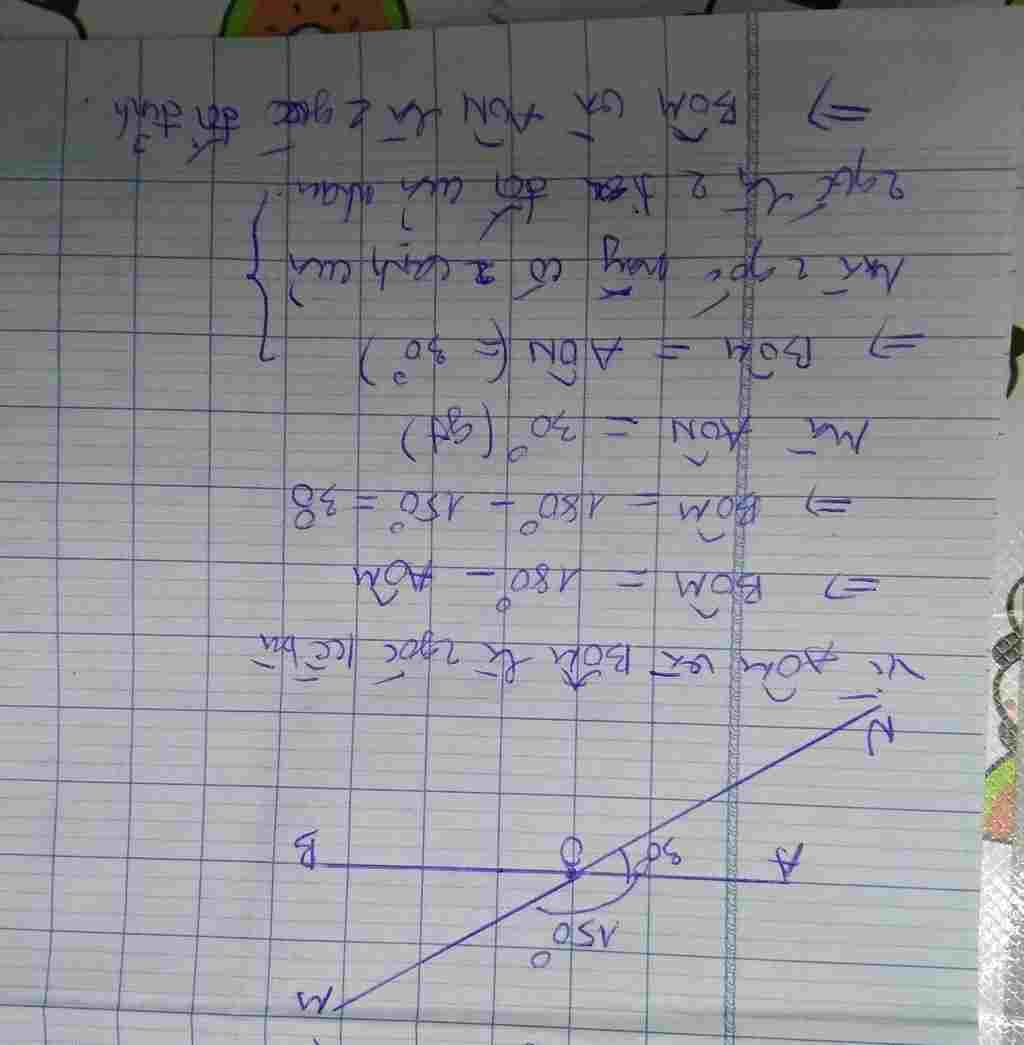 M
150°
A 30° O B
N
Vì AÔM và BÔM là 2 góc kề bù
=> BÔM = 180° - AÔM
=> BÔM = 180° - 150° = 30
Mà AÔN = 30° (gt)
=> BÔM = AÔN (= 30°)
Mà 2 góc này có 2 cạnh của
2 góc là 2 tia đối của nhau.
=> BÔM và AÔN là 2 góc đối đỉnh.